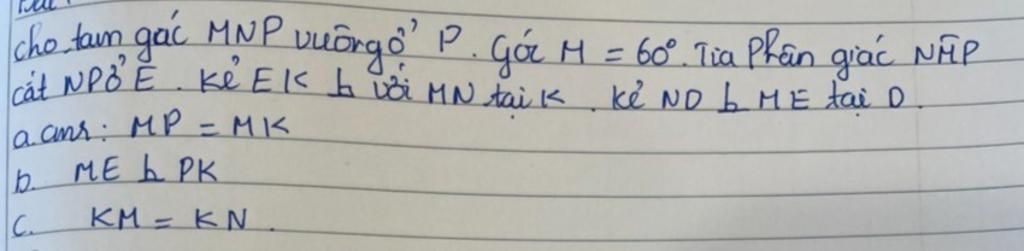 cho tam gác MNP vuông ở P. Góc M = 60°. Tia Phân giác NM̂P
cắt NP ở E. Kẻ EK ⊥ với MN tại K. kẻ ND ⊥ ME tại D.
a. cmr: MP = MK
b. ME ⊥ PK
c. KM = KN.